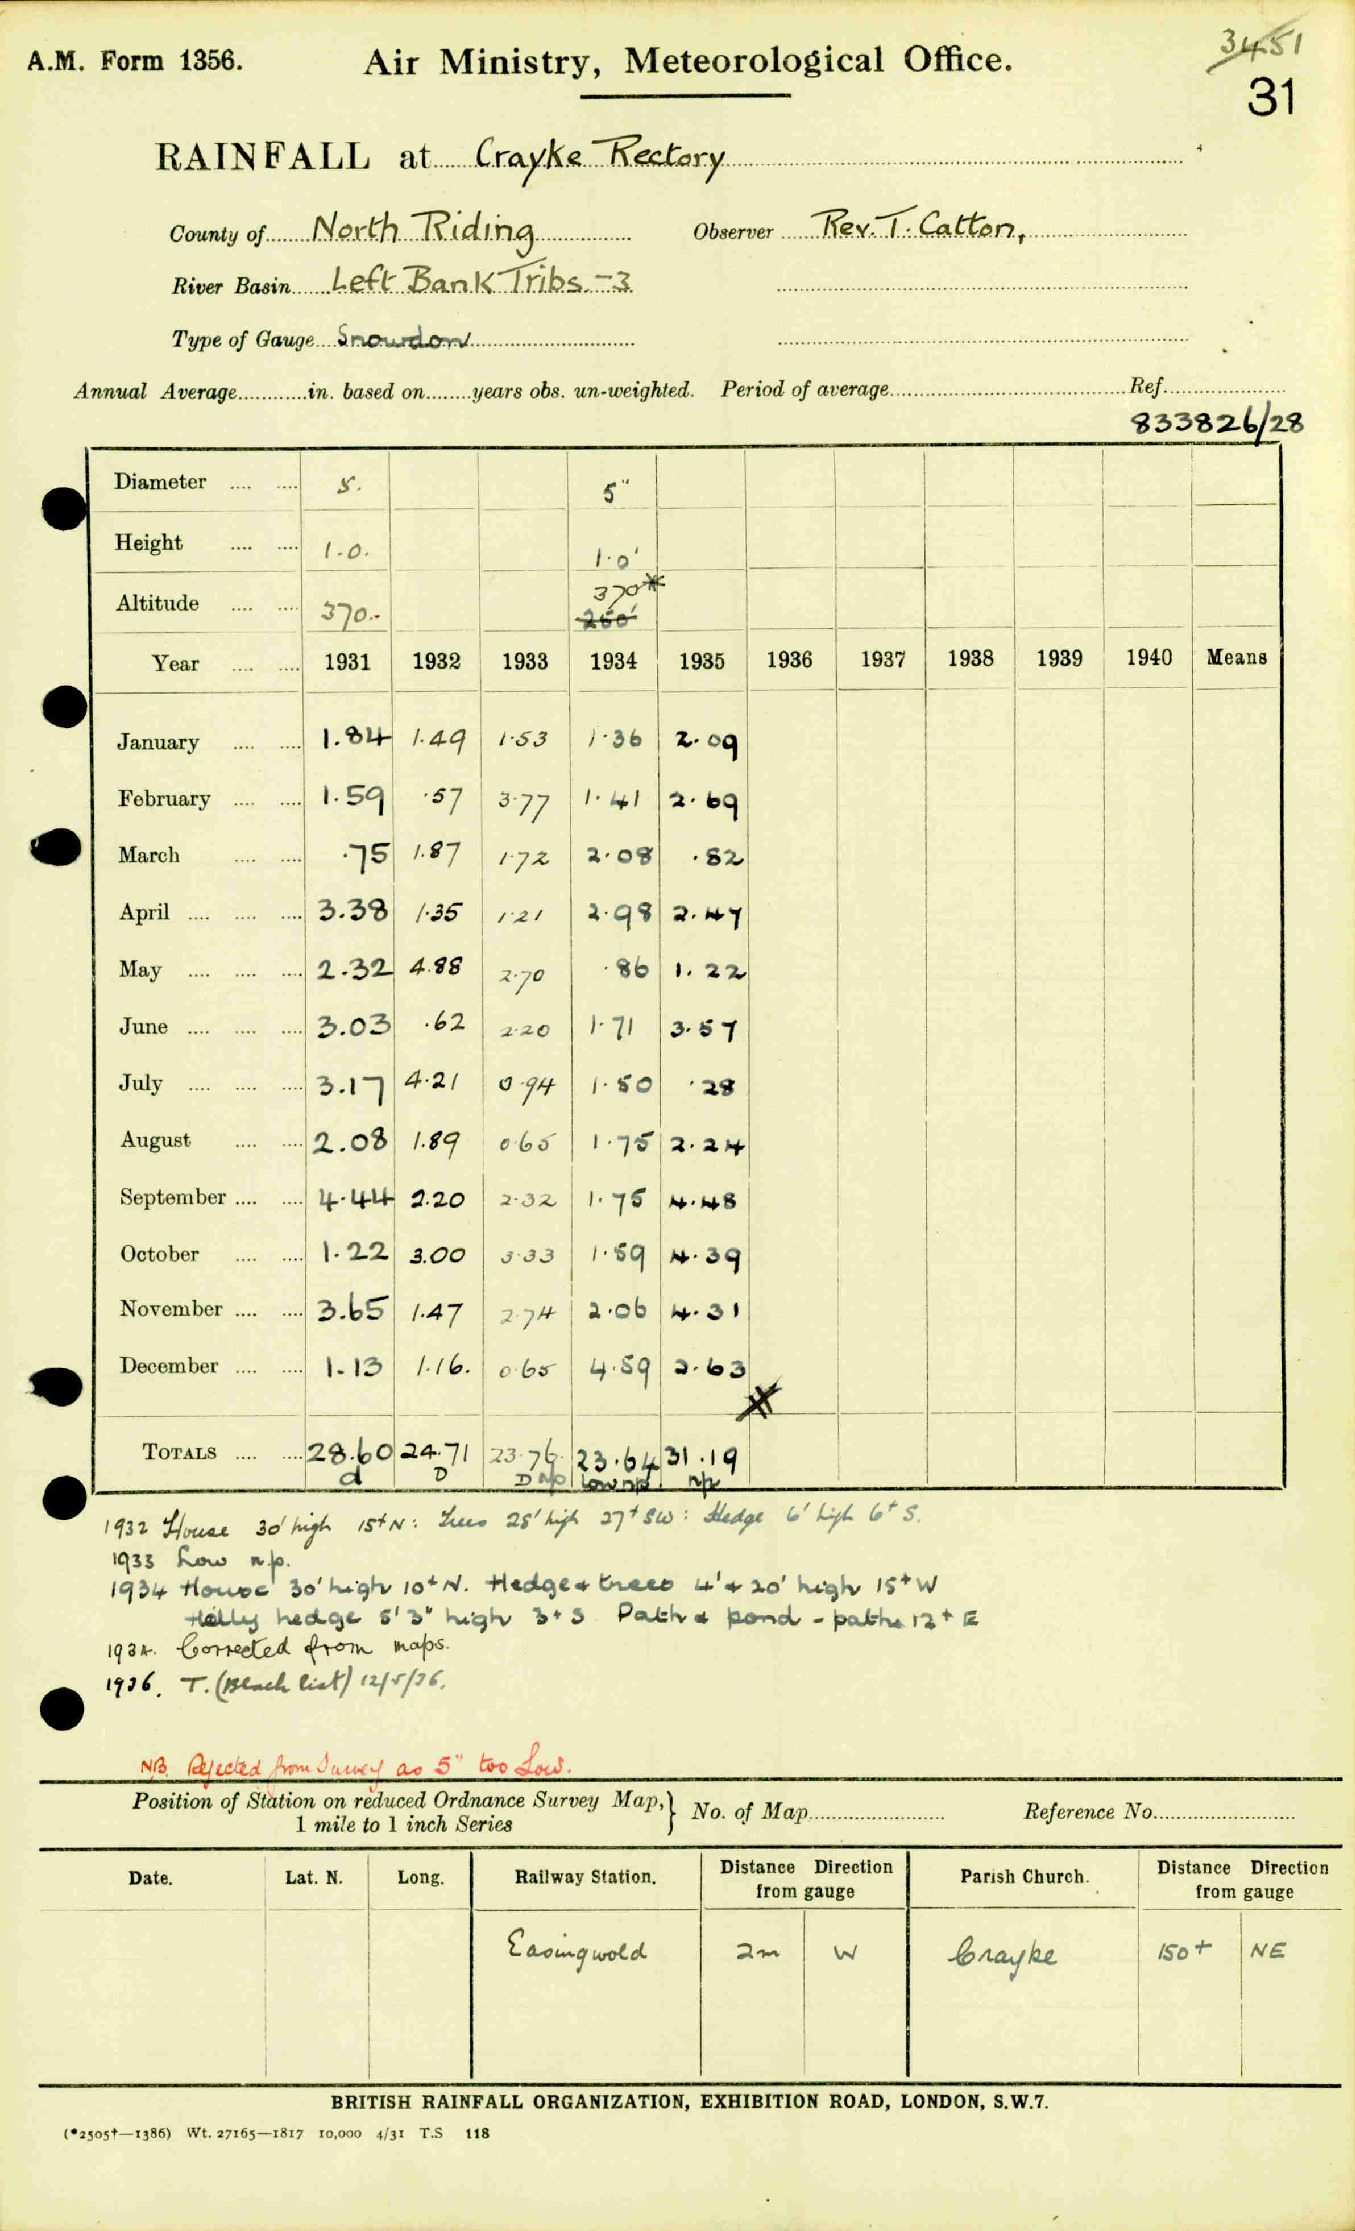 3451
A.M. Form 1356. Air Ministry, Meteorological Office.
31
RAINFALL at Crayke Rectory
County of North Riding Observer Rev. T. Catton,
River Basin Left Bank Tribs. -3
Type of Gauge Snowdon
Annual Average in. based on years obs. un-weighted. Period of average Ref.
833826/28
Diameter 5. 5"
Height 1.0. 1.0'
Altitude 370. 370* 260'
Year 1931 1932 1933 1934 1935 1936 1937 1938 1939 1940 Means
January 1.84 1.49 1.53 1.36 2.09
February 1.59 .57 3.77 1.41 2.69
March .75 1.87 1.72 2.08 .82
April 3.38 1.35 1.21 2.98 2.47
May 2.32 4.88 2.70 .86 1.22
June 3.03 .62 2.20 1.71 3.57
July 3.17 4.21 0.94 1.50 .28
August 2.08 1.89 0.65 1.75 2.24
September 4.44 2.20 2.32 1.75 4.48
October 1.22 3.00 3.33 1.59 4.39
November 3.65 1.47 2.74 2.06 4.31
December 1.13 1.16. 0.65 4.59 2.63
TOTALS 28.60 24.71 23.76 23.64 31.19
d D D np Low np. np
1932 House 30' high 15+ N: Trees 25' high 27+ SW: Hedge 6' high 6+ S.
1933 Low n.p.
1934 House 30' high 10+ N. Hedge & trees 4' & 20' high 15+ W
Holly hedge 5' 3" high 3+ S Path & pond - path 12+ E
1934. Corrected from maps.
1936. T. (Black list) 12/5/36.
NB. Rejected from Survey as 5" too Low.
Position of Station on reduced Ordnance Survey Map, } No. of Map Reference No.
1 mile to 1 inch Series
Date. Lat. N. Long. Railway Station. Distance Direction from gauge Parish Church. Distance Direction from gauge
Easingwold 2m W Crayke 150+ NE
BRITISH RAINFALL ORGANIZATION, EXHIBITION ROAD, LONDON, S.W.7.
(*2505†—1386) Wt. 27165—1817 10,000 4/31 T.S 118